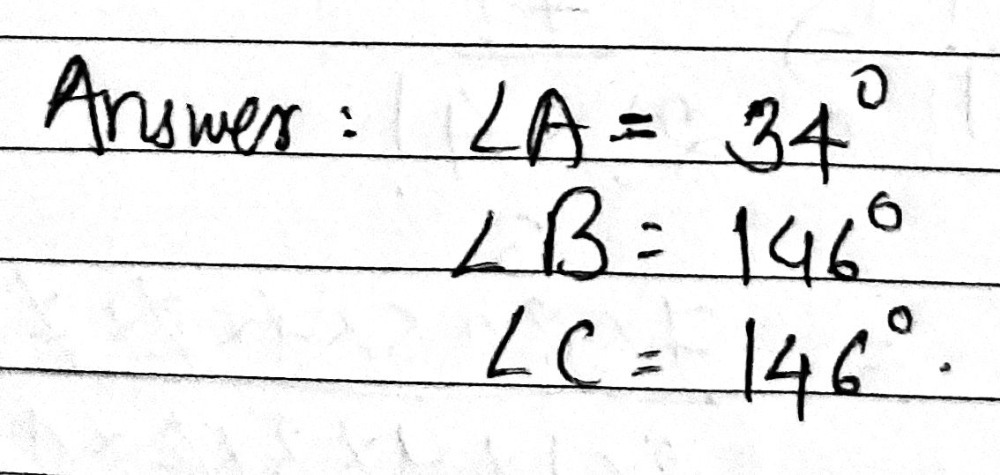 Answer: ∠A = 34°
∠B = 146°
∠C = 146°.